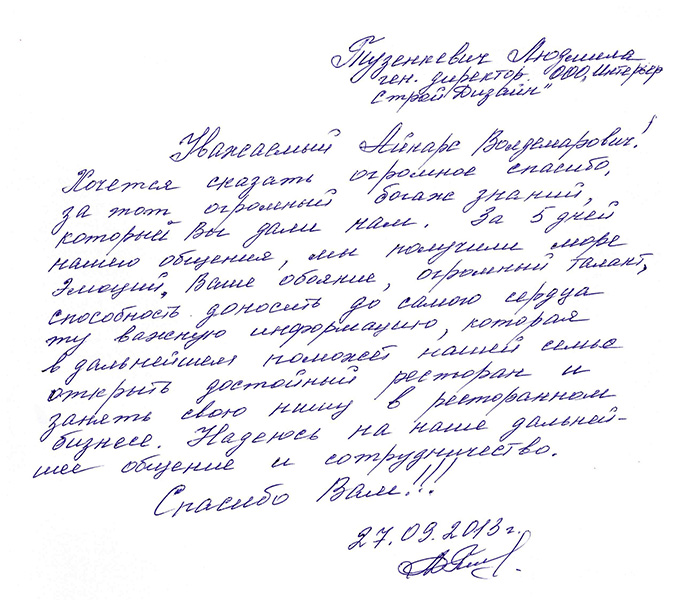 Тузенкевич Людмила
ген. директор. ООО „Интерьер
Строй Дизайн"
Уважаемый Айнарс Волдемарович!
Хочется сказать огромное спасибо,
за тот огромный богаж знаний,
который Вы дали нам. За 5 дней
нашего общения, мы получили море
Эмоций. Ваше обояние, огромный талант,
способность доносить до самого сердца
ту важную информацию, которая
в дальнейшем поможет нашей семье
открыть достойный ресторан и
занять свою нишу в ресторанном
бизнесе. Надеюсь на наше дальней-
шее общение и сотрудничество.
Спасибо Вам!!!
27.09.2013 г.